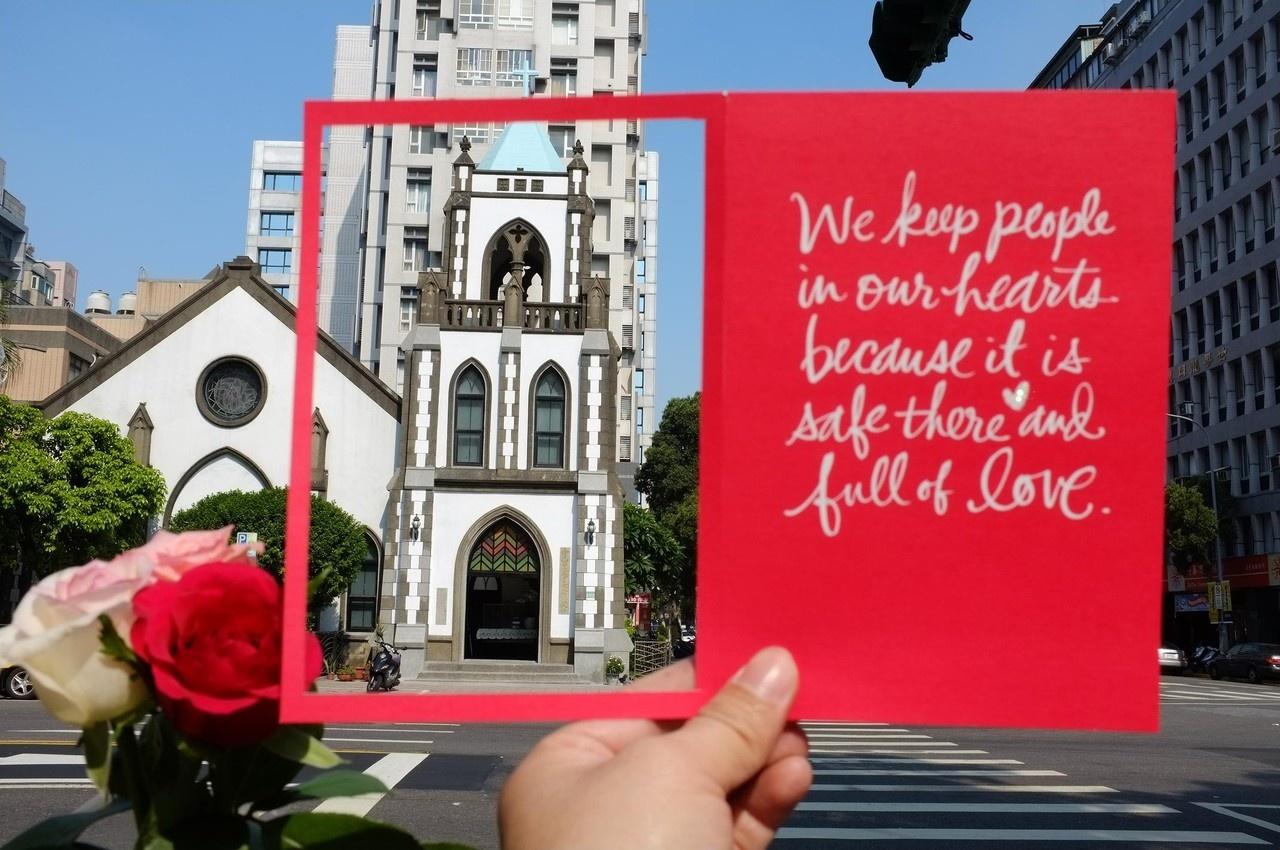 We keep people
in our hearts
because it is
safe there and
full of love.
P